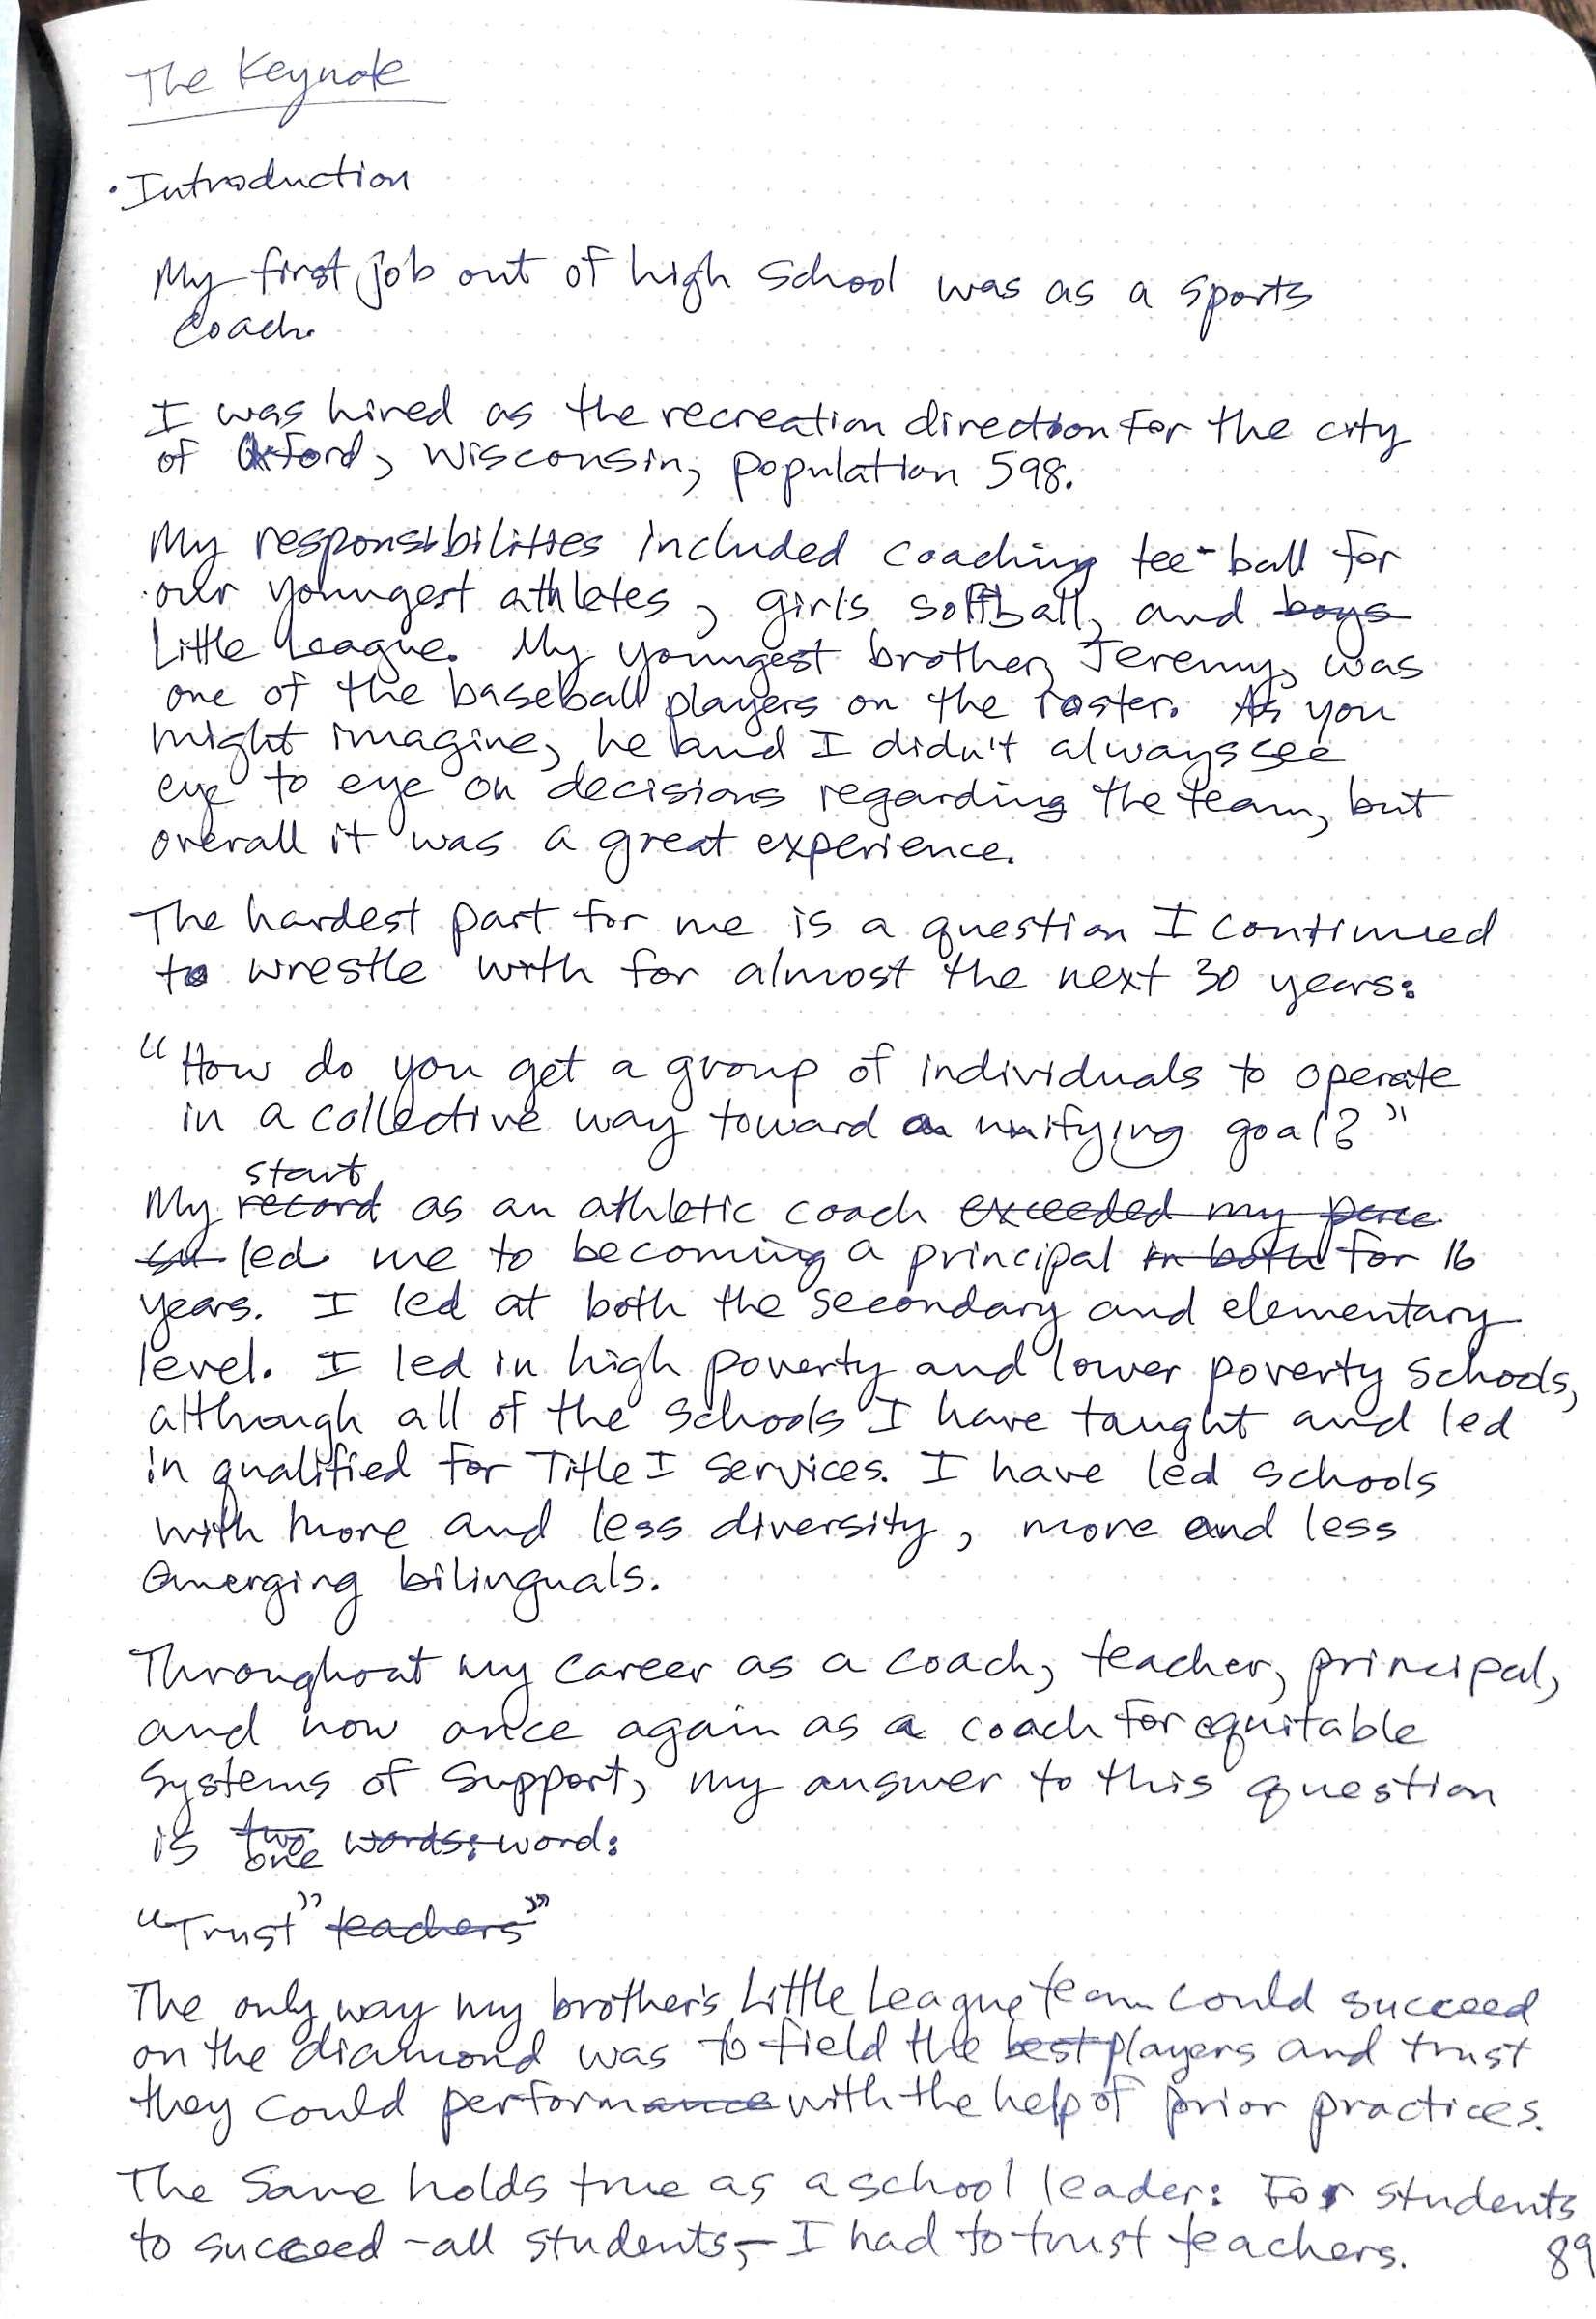 The Keynote
• Introduction
My first job out of high school was as a sports
coach.
I was hired as the recreation direction for the city
of Oxford, Wisconsin, population 598.
My responsibilities included coaching tee-ball for
our youngest athletes, girls softball, and boys
Little League. My youngest brother, Jeremy, was
one of the baseball players on the roster. As you
might imagine, he and I didn't always see
eye to eye on decisions regarding the team, but
overall it was a great experience.
The hardest part for me is a question I continued
to wrestle with for almost the next 30 years:
"How do you get a group of individuals to operate
in a collective way toward a unifying goal?"
start
My record as an athletic coach exceeded my
led me to becoming a principal in both for 16
years. I led at both the secondary and elementary
level. I led in high poverty and lower poverty schools,
although all of the schools I have taught and led
in qualified for Title I services. I have led schools
with more and less diversity, more and less
emerging bilinguals.
Throughout my career as a coach, teacher, principal,
and now once again as a coach for equitable
systems of support, my answer to this question
is two words: word:
one
"Trust" teachers"
The only way my brother's Little League team could succeed
on the diamond was to field the best players and trust
they could performance with the help of prior practices.
The same holds true as a school leader: For students
to succeed - all students, - I had to trust teachers.
89